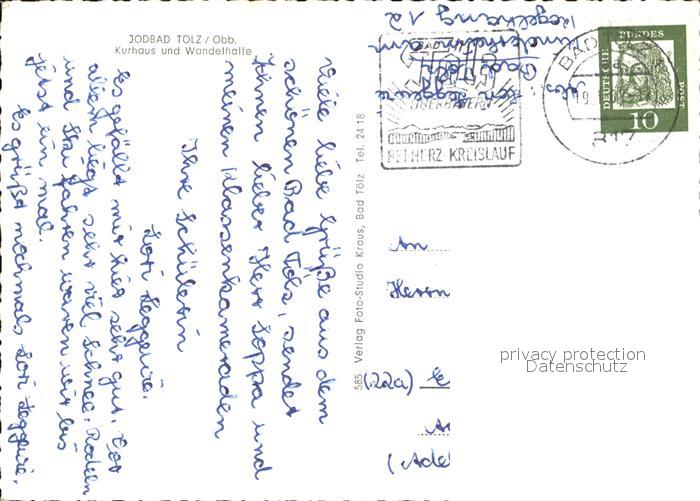 JODBAD TÖLZ / Obb.
Kurhaus und Wandelhalle
Viele liebe Grüße aus dem
schönen Bad Tölz, sendet
Ihnen lieber Herr Soppa und
meinen Klassenkameraden
Ihre Schülerin
Lori Seggewe.
Es gefällt mir hier sehr gut. Vor
allem liegt sehr viel Schnee. Rodeln
und Ski fahren waren wir bis
jetzt ein mal.
Es grüßt nochmals Lori Seggewe.
585 Verlag Foto-Studio Kraus, Bad Tölz Tel. 24 18
Bad Tölz
12
BAD TÖLZ
OBERBAYERN
BEI HERZ KREISLAUF
BAD TÖLZ
DEUTSCHE BUNDESPOST
10
An
Herrn
(22a)
privacy protection
Datenschutz